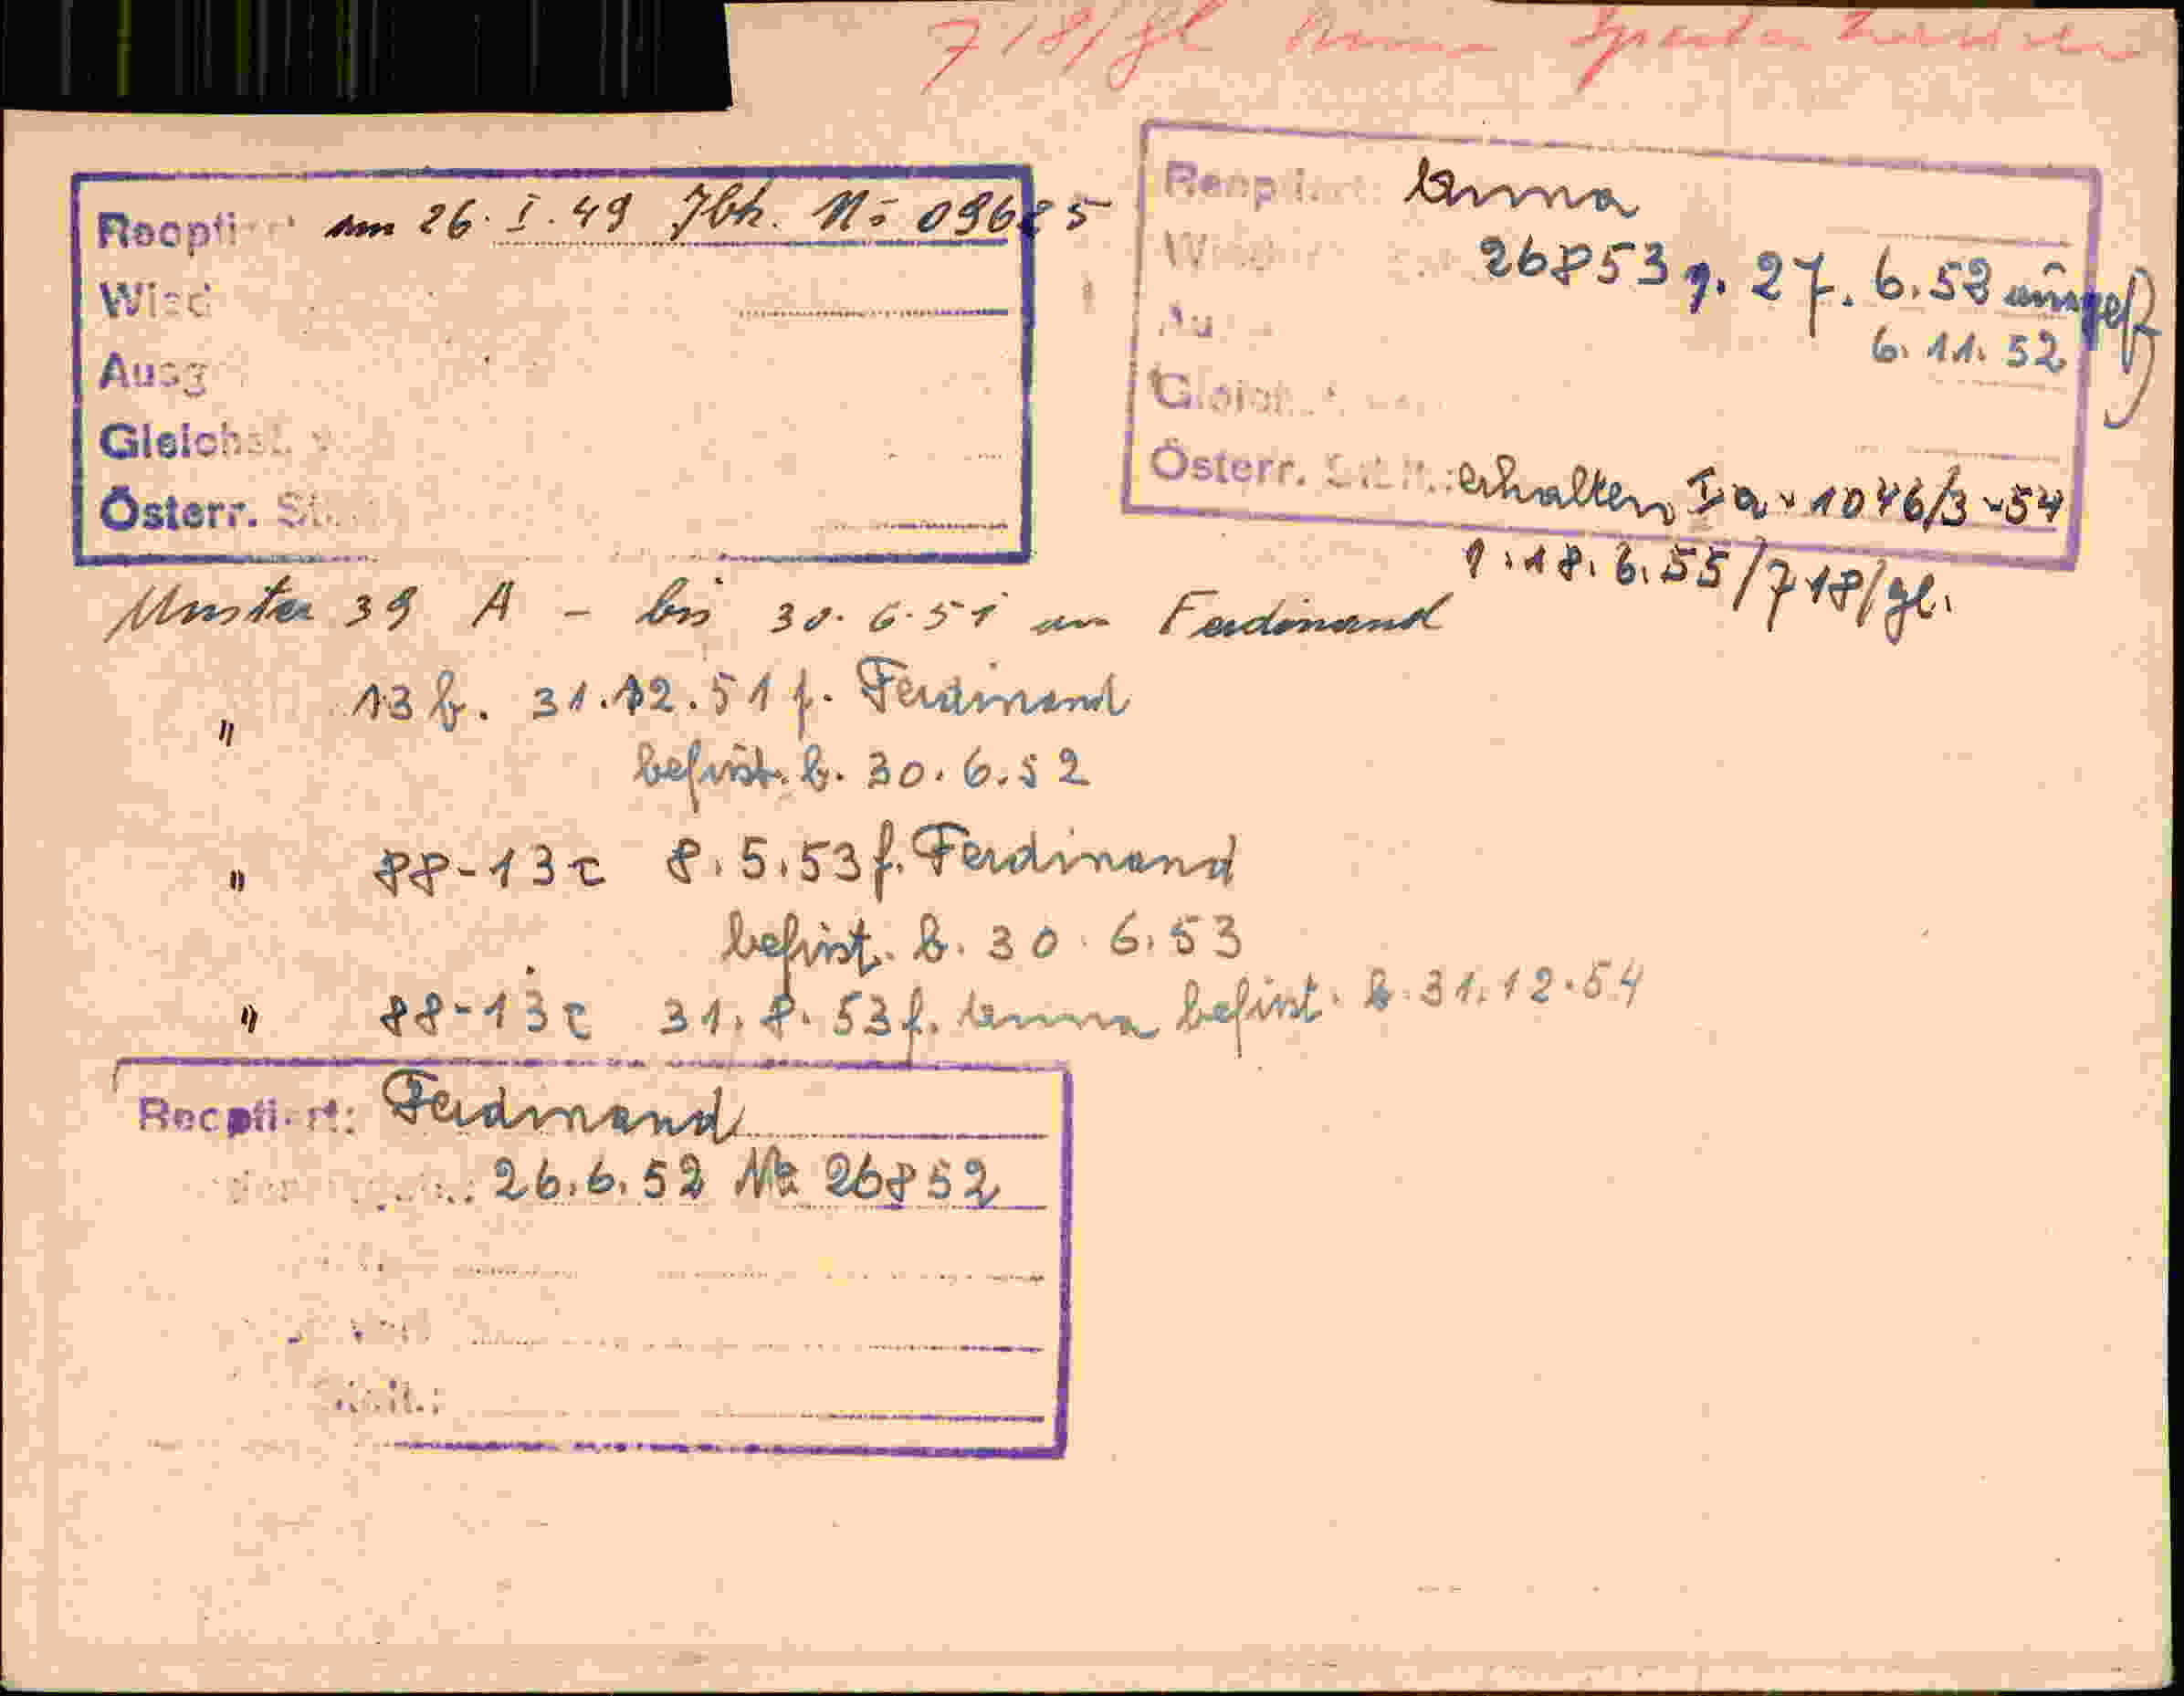 718/gl Anna
Reopti am 26. I. 49 Jbk. No 09685
Wied
Ausg
Gleichst.
Österr. St
Reoptiert: Anna
26853 v. 27. 6. 52
6. 11. 52
Gleich
Österr. erhalten Ia-1046/3-54
v. 18. 6. 55/718/gl.
Muster 39 A - bis 30. 6. 51 an Ferdinand
" 13 b. 31. 12. 51 f. Ferdinand
befrist. b. 30. 6. 52
" 88-13c 8. 5. 53 f. Ferdinand
befrist. b. 30. 6. 53
" 88-13c 31. 8. 53 f. Anna befrist. b. 31. 12. 54
Reoptiert: Ferdinand
26. 6. 52 Nr 26852